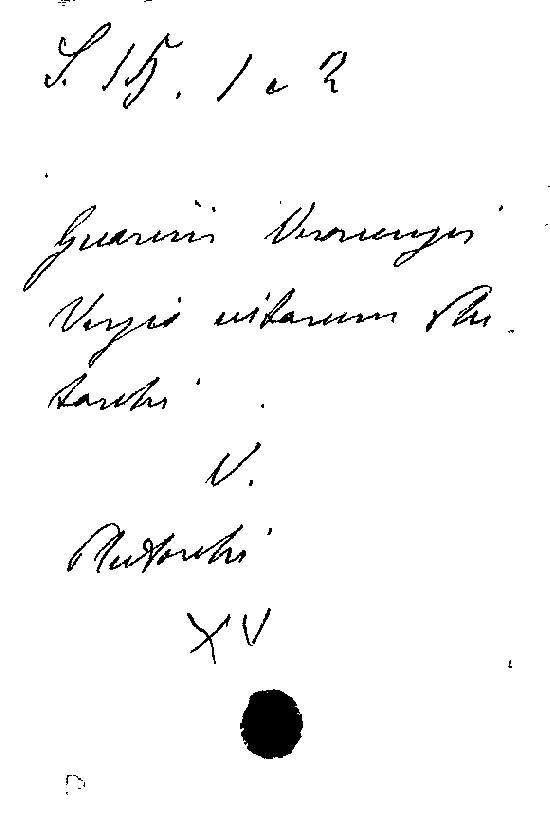 S. 15. 1 e 2
Guarini Veronensis
Versio vitarum Plu-
tarchi
V.
Plutarchi
XV